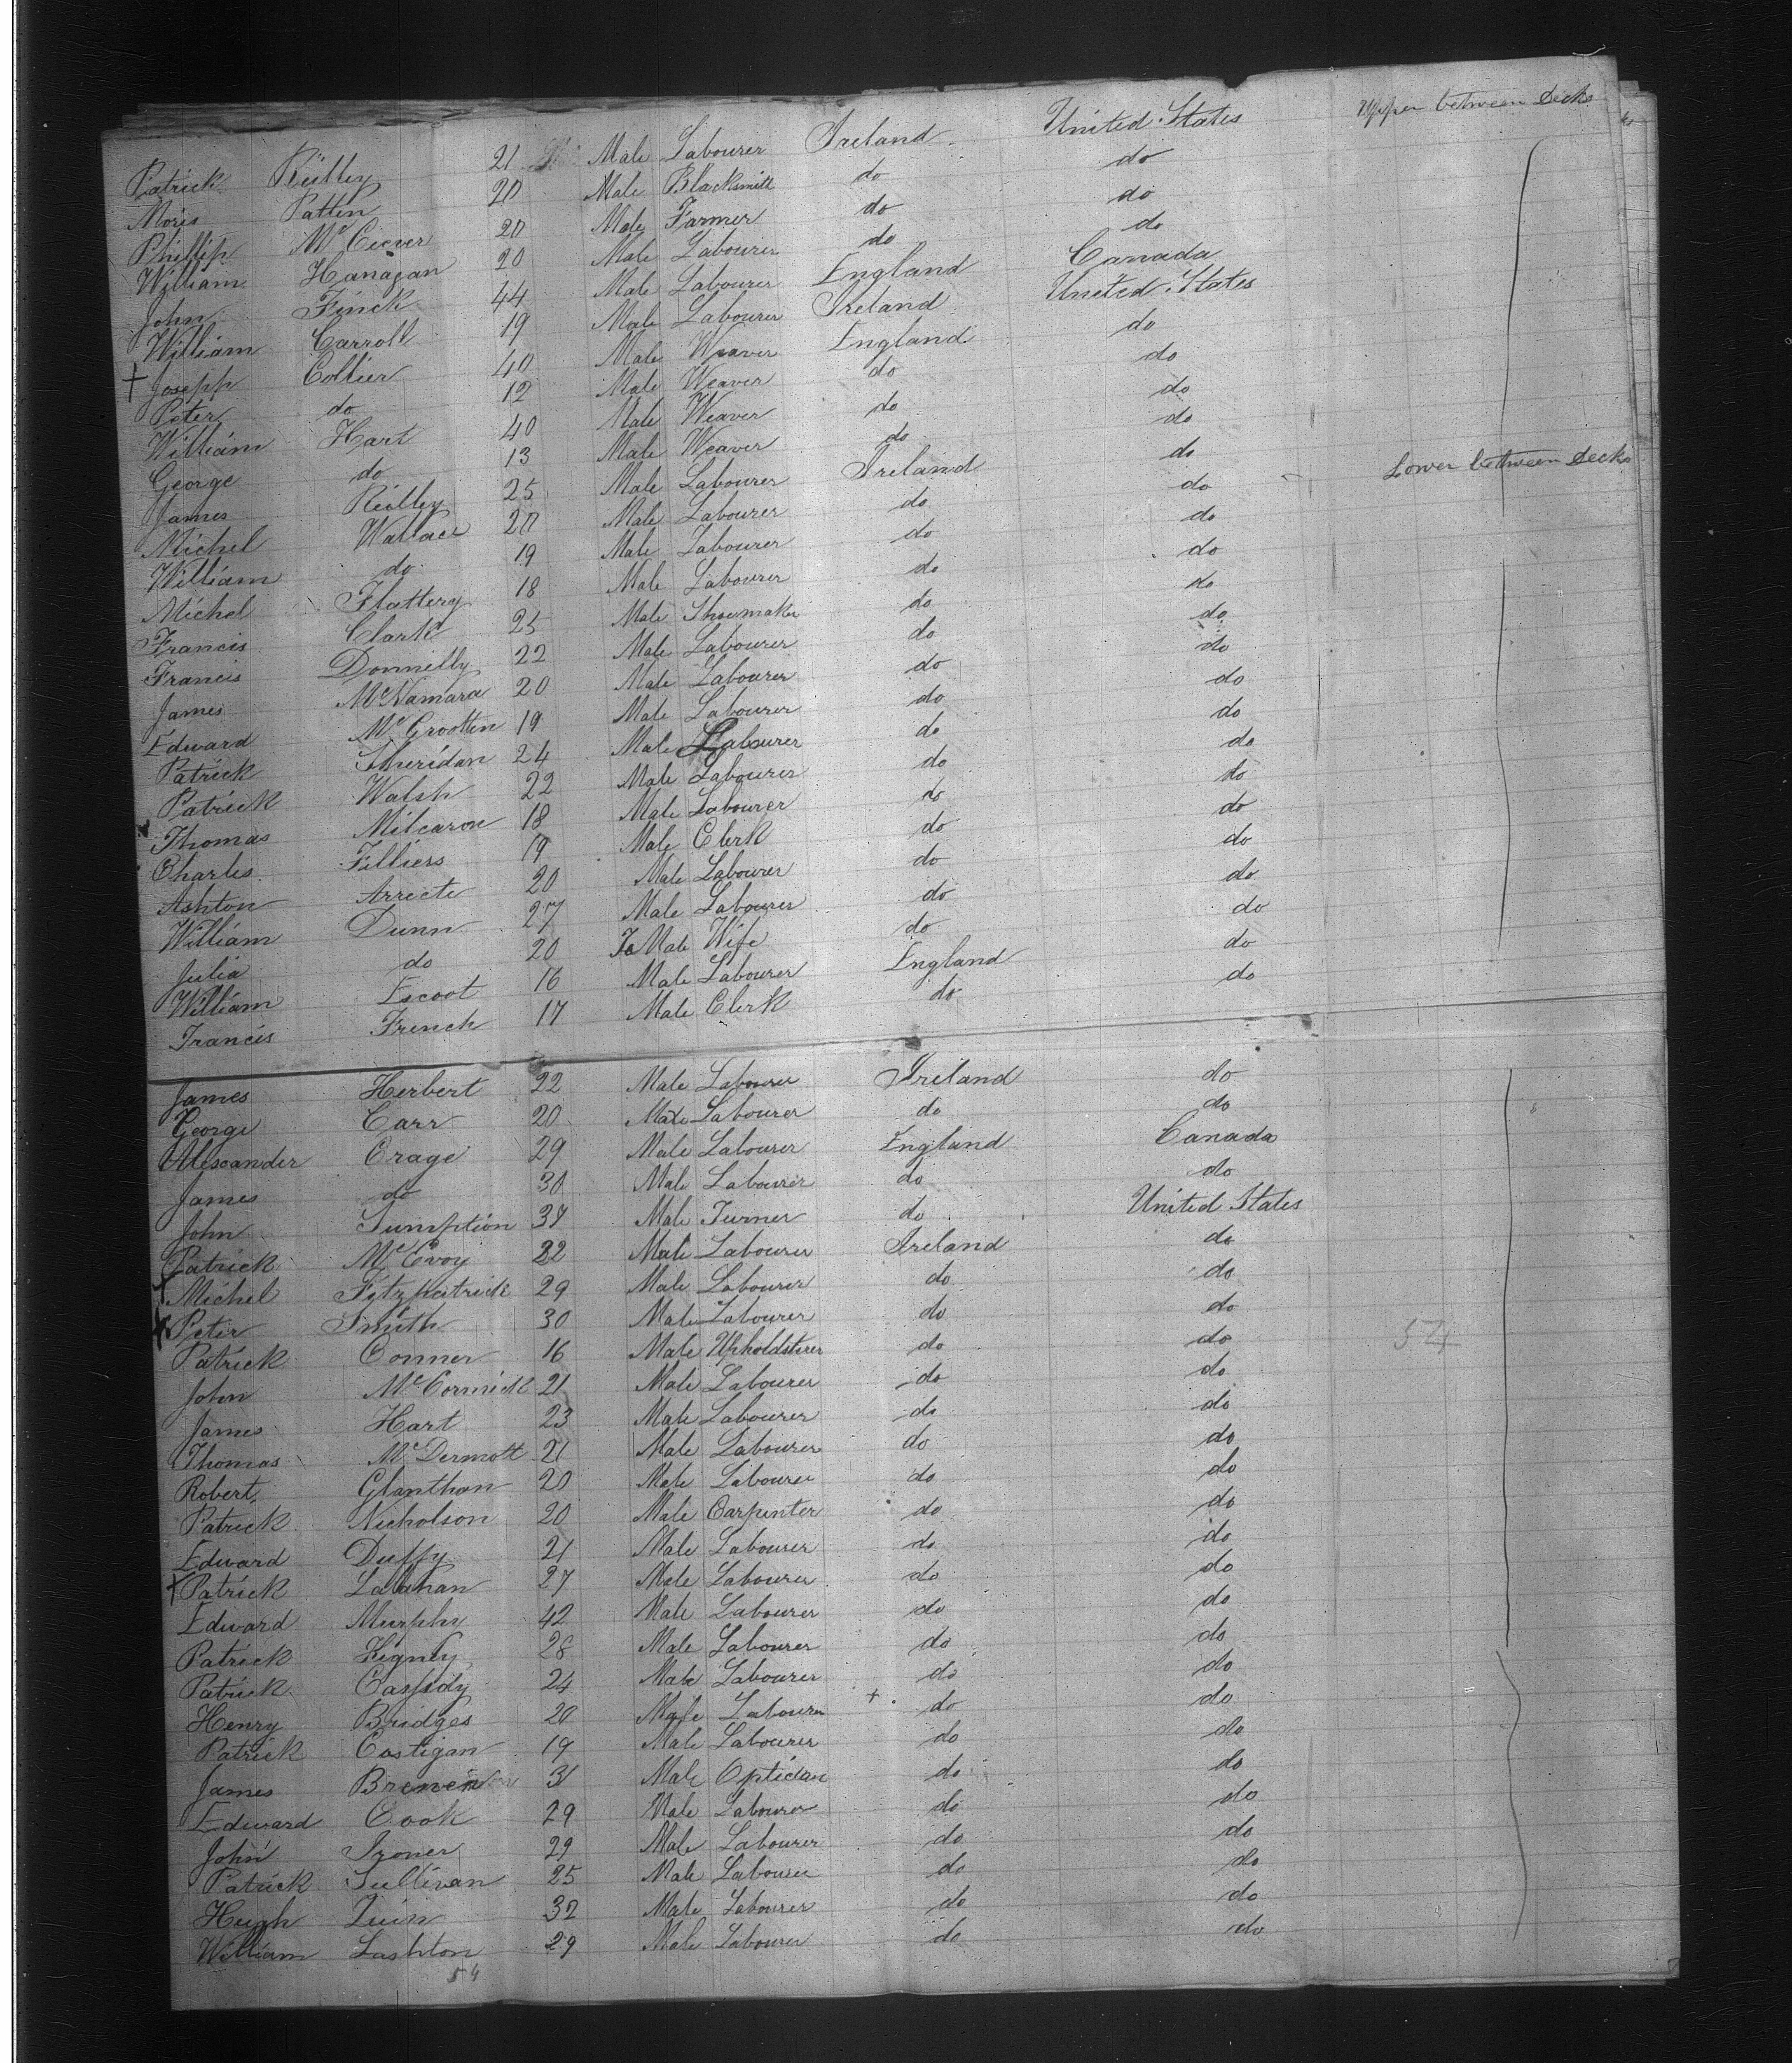 Patrick Reilley 21 Male Labourer Ireland United States Upper between Decks
Moris Patten 20 Male Blacksmith do do
Phillip Mc Ciever 20 Male Farmer do do
William Hanagan 20 Male Labourer do do
John Finck 44 Male Labourer England Canada
William Carroll 19 Male Labourer Ireland United States
+ Joseph Collier 40 Male Weaver England do
Peter do 12 Male Weaver do do
William Hart 40 Male Weaver do do
George do 13 Male Weaver do do
James Reilley 25 Male Labourer Ireland do Lower between Decks
Michel Wallace 20 Male Labourer do do
William do 19 Male Labourer do do
Michel Flattery 18 Male Labourer do do
Francis Clark 25 Male Shoemaker do do
Francis Donnelly 22 Male Labourer do do
James McNamara 20 Male Labourer do do
Edward Mc Grootten 19 Male Labourer do do
Patrick Sheridan 24 Male Labourer do do
Patrick Walsh 22 Male Labourer do do
Thomas Milcaron 18 Male Labourer do do
Charles Filliers 19 Male Clerk do do
Ashton Arriete 20 Male Labourer do do
William Dunn 27 Male Labourer do do
Julia do 20 Fe Male Wife do do
William Escoot 16 Male Labourer England do
Francis French 17 Male Clerk do do
James Herbert 22 Male Labourer Ireland do
George Carr 20 Male Labourer do do
Alexander Crage 29 Male Labourer England Canada
James do 30 Male Labourer do do
John Sumption 37 Male Turner do United States
Patrick Mc Evoy 22 Male Labourer Ireland do
+ Michel Fitzpatrick 29 Male Labourer do do
x Peter Smith 30 Male Labourer do do
Patrick Conner 16 Male Upholdsterer do do 54
John Mc Cormick 21 Male Labourer do do
James Hart 23 Male Labourer do do
Thomas Mc Dermott 21 Male Labourer do do
Robert Glanthon 20 Male Labourer do do
Patrick Nicholson 20 Male Carpenter do do
Edward Duffy 21 Male Labourer do do
+ Patrick Lalahan 27 Male Labourer do do
Edward Murphy 42 Male Labourer do do
Patrick Kigney 28 Male Labourer do do
Patrick Cassidy 24 Male Labourer do do
Henry Bridges 20 Male Labourer + do do
Patrick Costigan 19 Male Labourer do do
James 31 Male Optician do do
Edward Cook 29 Male Labourer do do
John Troner 29 Male Labourer do do
Patrick Sullivan 25 Male Labourer do do
Hugh Quin 32 Male Labourer do do
William Lashton 29 Male Labourer do do
54